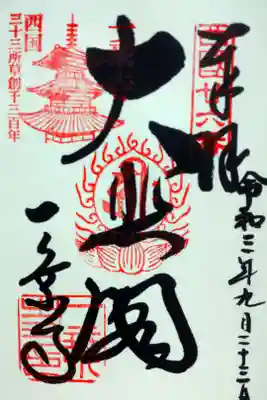 奉拝
令和三年九月二十三日
大悲閣
一乗寺
西国
三十三所草創千三百年
西国廿六番